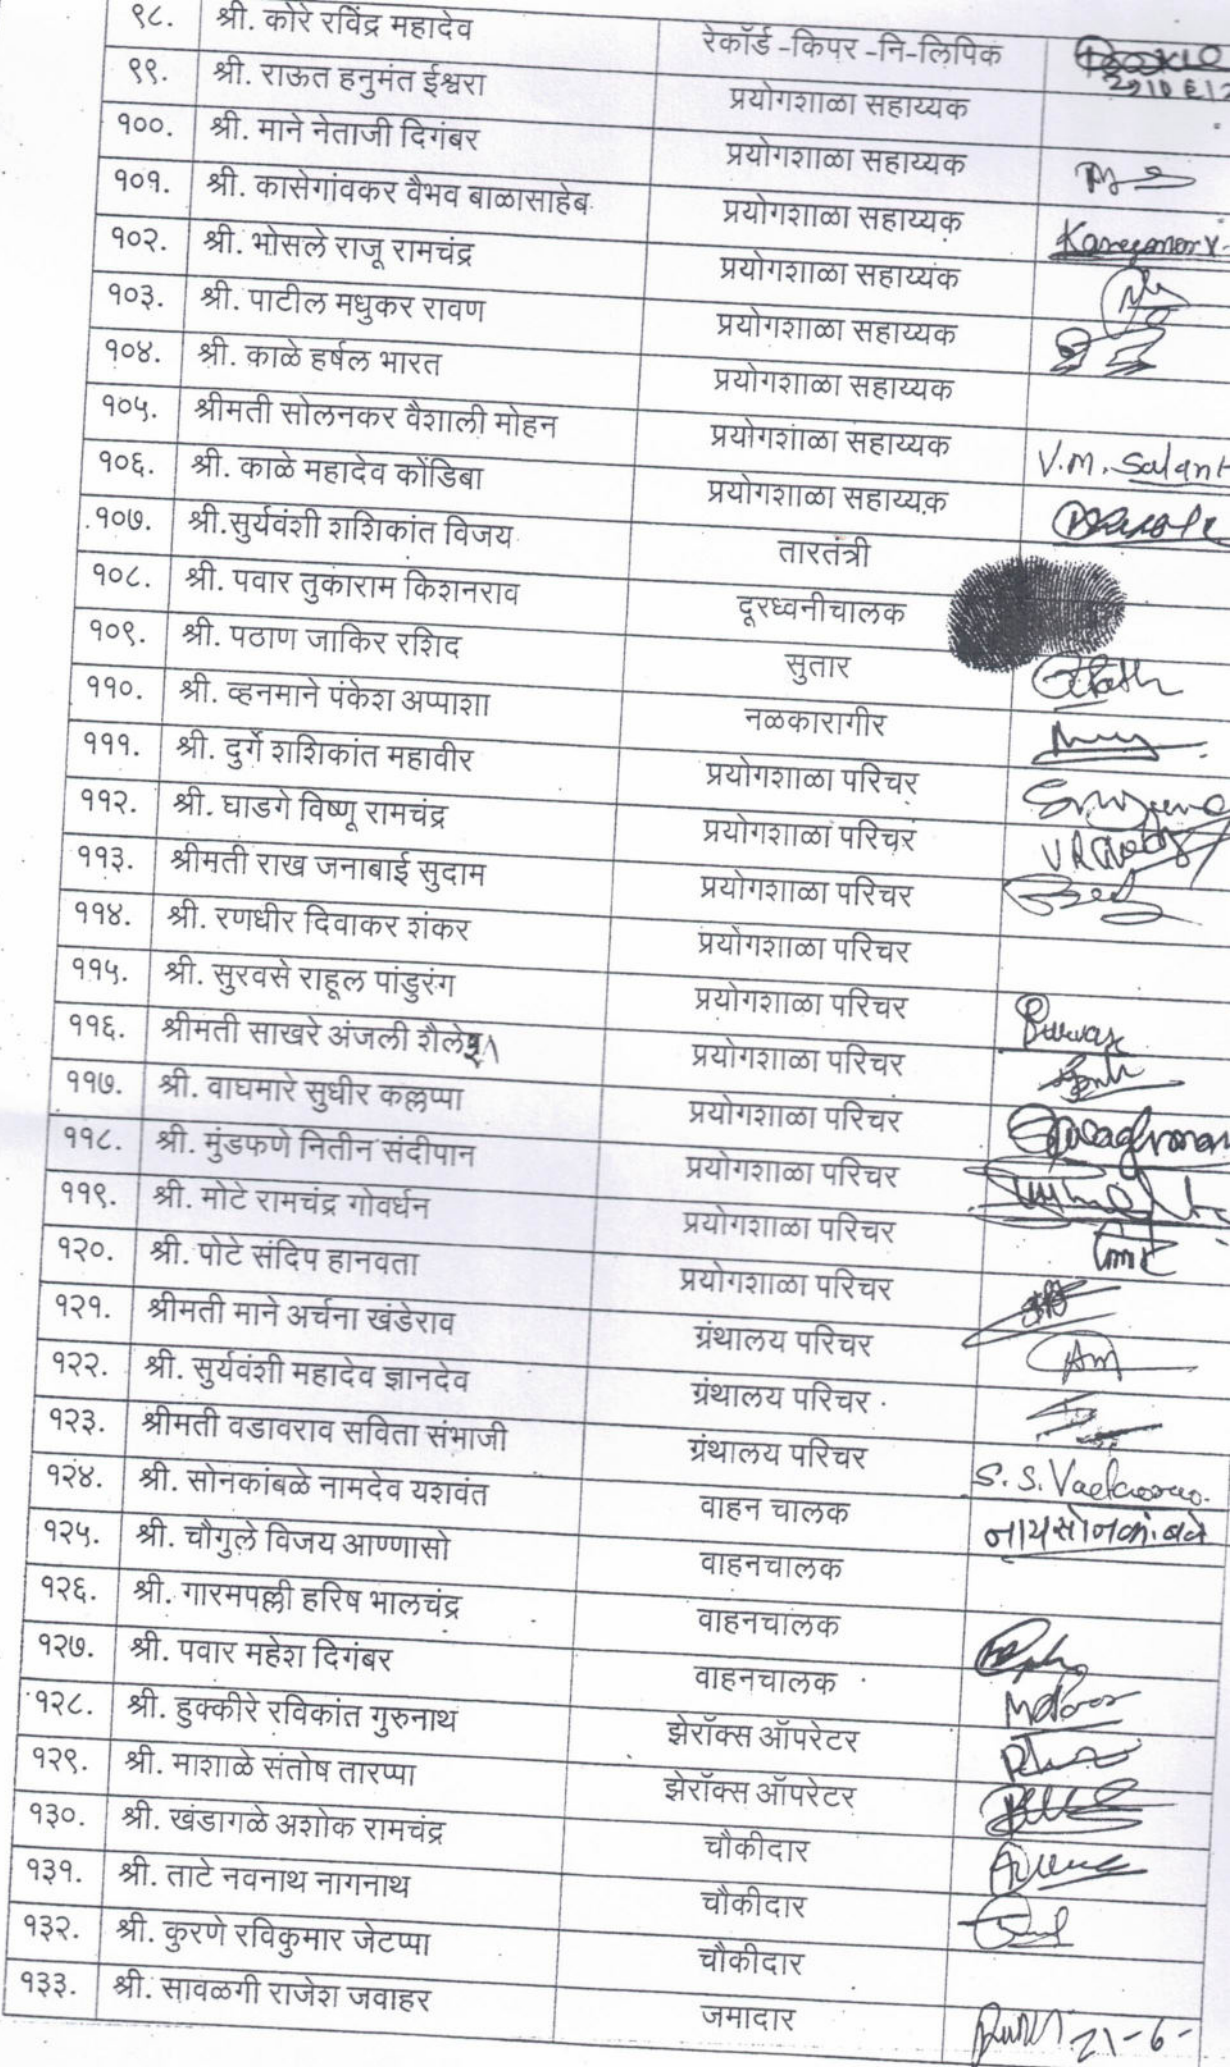 ९८. श्री. कोरे रविंद्र महादेव रेकॉर्ड -किपर -नि-लिपिक
९९. श्री. राऊत हनुमंत ईश्वरा प्रयोगशाळा सहाय्यक
१००. श्री. माने नेताजी दिगंबर प्रयोगशाळा सहाय्यक
१०१. श्री. कासेगांवकर वैभव बाळासाहेब प्रयोगशाळा सहाय्यक
१०२. श्री. भोसले राजू रामचंद्र प्रयोगशाळा सहाय्यक
१०३. श्री. पाटील मधुकर रावण प्रयोगशाळा सहाय्यक
१०४. श्री. काळे हर्षल भारत प्रयोगशाळा सहाय्यक
१०५. श्रीमती सोलनकर वैशाली मोहन प्रयोगशाळा सहाय्यक V.M.
१०६. श्री. काळे महादेव कोंडिबा प्रयोगशाळा सहाय्यक
१०७. श्री.सुर्यवंशी शशिकांत विजय तारतंत्री
१०८. श्री. पवार तुकाराम किशनराव दूरध्वनीचालक
१०९. श्री. पठाण जाकिर रशिद सुतार
११०. श्री. व्हनमाने पंकेश अप्पाशा नळकारागीर
१११. श्री. दुर्गे शशिकांत महावीर प्रयोगशाळा परिचर
११२. श्री. घाडगे विष्णू रामचंद्र प्रयोगशाळा परिचर
११३. श्रीमती राख जनाबाई सुदाम प्रयोगशाळा परिचर
११४. श्री. रणधीर दिवाकर शंकर प्रयोगशाळा परिचर
११५. श्री. सुरवसे राहूल पांडुरंग प्रयोगशाळा परिचर
११६. श्रीमती साखरे अंजली प्रयोगशाळा परिचर
११७. श्री. वाघमारे सुधीर कल्लप्पा प्रयोगशाळा परिचर
११८. श्री. मुंडफणे नितीन संदीपान प्रयोगशाळा परिचर
११९. श्री. मोटे रामचंद्र गोवर्धन प्रयोगशाळा परिचर
१२०. श्री. पोटे संदिप हानवता प्रयोगशाळा परिचर
१२१. श्रीमती माने अर्चना खंडेराव ग्रंथालय परिचर
१२२. श्री. सुर्यवंशी महादेव ज्ञानदेव ग्रंथालय परिचर
१२३. श्रीमती वडावराव सविता संभाजी ग्रंथालय परिचर S.S.
१२४. श्री. सोनकांबळे नामदेव यशवंत वाहन चालक
१२५. श्री. चौगुले विजय आण्णासो वाहनचालक
१२६. श्री. गारमपल्ली हरिष भालचंद्र वाहनचालक
१२७. श्री. पवार महेश दिगंबर वाहनचालक
१२८. श्री. हुक्कीरे रविकांत गुरुनाथ झेरॉक्स ऑपरेटर
१२९. श्री. माशाळे संतोष तारप्पा झेरॉक्स ऑपरेटर
१३०. श्री. खंडागळे अशोक रामचंद्र चौकीदार
१३१. श्री. ताटे नवनाथ नागनाथ चौकीदार
१३२. श्री. कुरणे रविकुमार जेटप्पा चौकीदार
१३३. श्री. सावळगी राजेश जवाहर जमादार 21-6-